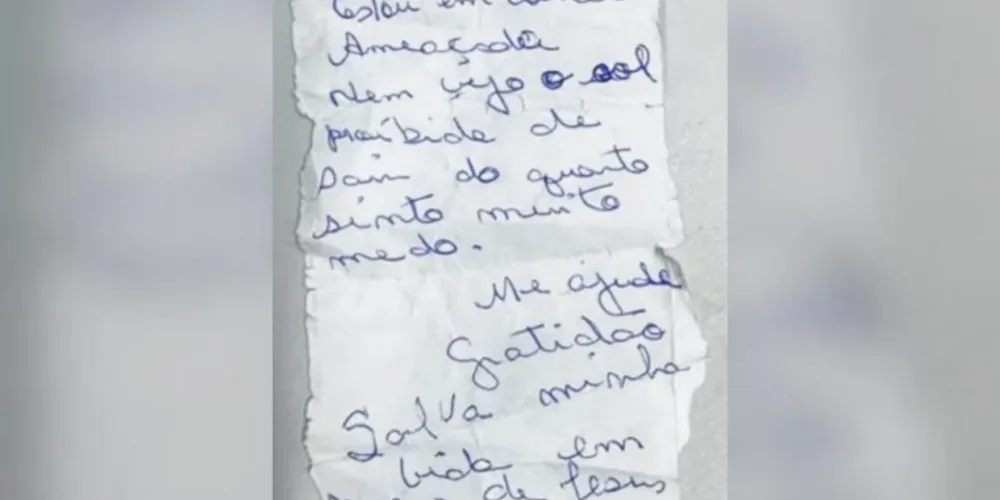 Estou em
Ameaçada
Nem vejo o sol
proibida de
sair do quarto
sinto muito
medo.
Me ajude
Gratidão
Salva minha
vida em
de Jesus